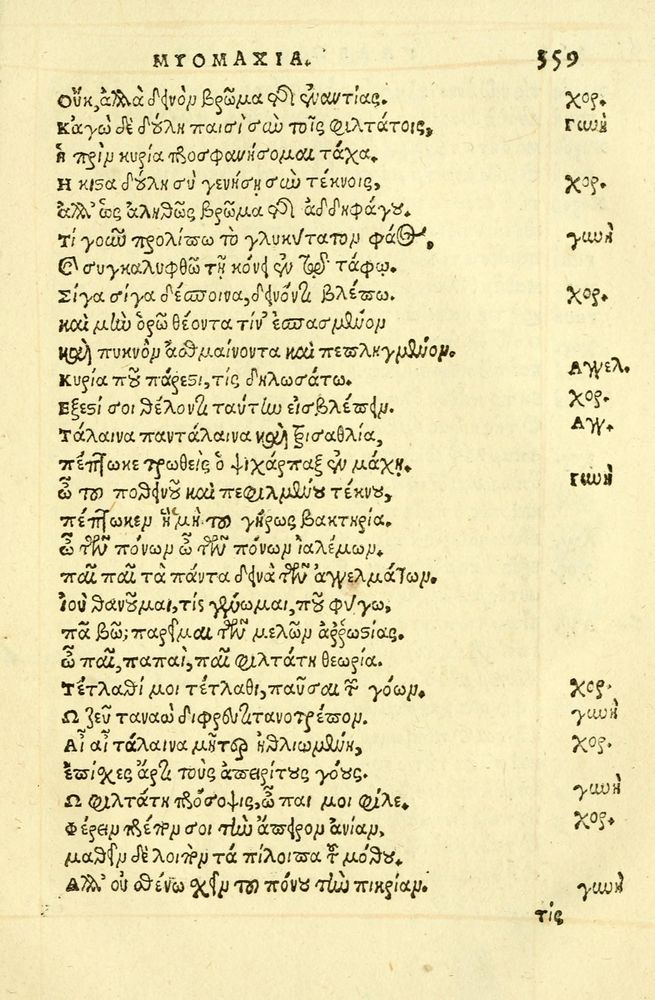 ΜΥΟΜΑΧΙΑ. 359
Οὔκ, ἀλλὰ δεινὸν βρῶμα τῆς ἐναντίας. χορ.
Κἀγὼ δὲ δούλη παισὶ σὺν τοῖς φιλτάτοις, γυνὴ
ἡ πρὶν κυρία προσφανήσομαι τάχα.
Η κιστα δούλη σὺ γενήσῃ σὺν τέκνοις, χορ.
ἀλλ' ὡς ἀληθῶς βρῶμα τῆς ἀδδηφάγου.
Τί γοῦν προλίπω τὸ γλυκύτατον φάος, γυνὴ
συγκαλυφθῶ τῇ κόνει ἐν τῷ τάφῳ.
Σίγα σίγα δέσποινα, δεινόν τι βλέπω. χορ.
καὶ μὴν ὁρῶ θέοντα τίν' ἐσπασμένον
καὶ πυκνὸν ἀσθμαίνοντα καὶ πεπληγμένον.
Κυρία ποῦ πάρεστι, τίς δηλωσάτω. Αγγελ.
Εξεστί σοι θέλοντι ταύτην εἰσβλέπειν. χορ.
Τάλαινα παντάλαινα καὶ τρισαθλία, Αγ.
πέπτωκε τρωθεὶς ὁ ψιχάρπαξ ἐν μάχῃ.
ὦ τοῦ ποθεινοῦ καὶ πεφιλμένου τέκνου, γυνὴ
πέπτωκεν ἡμῖν τοῦ γήρως βακτηρία.
ὦ τῶν πόνων ὦ τῶν πόνων ἰαλέμων.
παῖ παῖ τὰ πάντα δεινὰ τῶν ἀγγελμάτων.
ἰοὺ θανοῦμαι, τίς γένωμαι, ποῦ φύγω,
πᾶ βῶ; παρεῖμαι τῶν μελῶν ἀῤῥωστίας.
ὦ παῖ, παπαὶ, παῖ φιλτάτη θεωρία.
Τέτλαθί μοι τέτλαθι, παῦσαι τῶν γόων. χορ.
Ω ζεῦ ταναῶ διφρευτὰ τανοτρέπον. γυνὴ
Αἶ αἶ τάλαινα μῆτερ ἠθλιωμένη, χορ.
ἐπίσχες ἄρτι τοὺς ἀπειρίτους γόους.
Ω φιλτάτη πρόσοψις, ὦ παῖ μοι φίλε. γυνὴ
Φέρειν πρέπον σοι τὴν ἄπειρον ἀνίαν, χορ.
μαθεῖν δὲ λοιπὸν τὰ πίλοιπα τοῦ μόθου.
Αλλ' οὐ σθένω σχεῖν τοῦ πόνου τὴν πικρίαν. γυνὴ
τίς